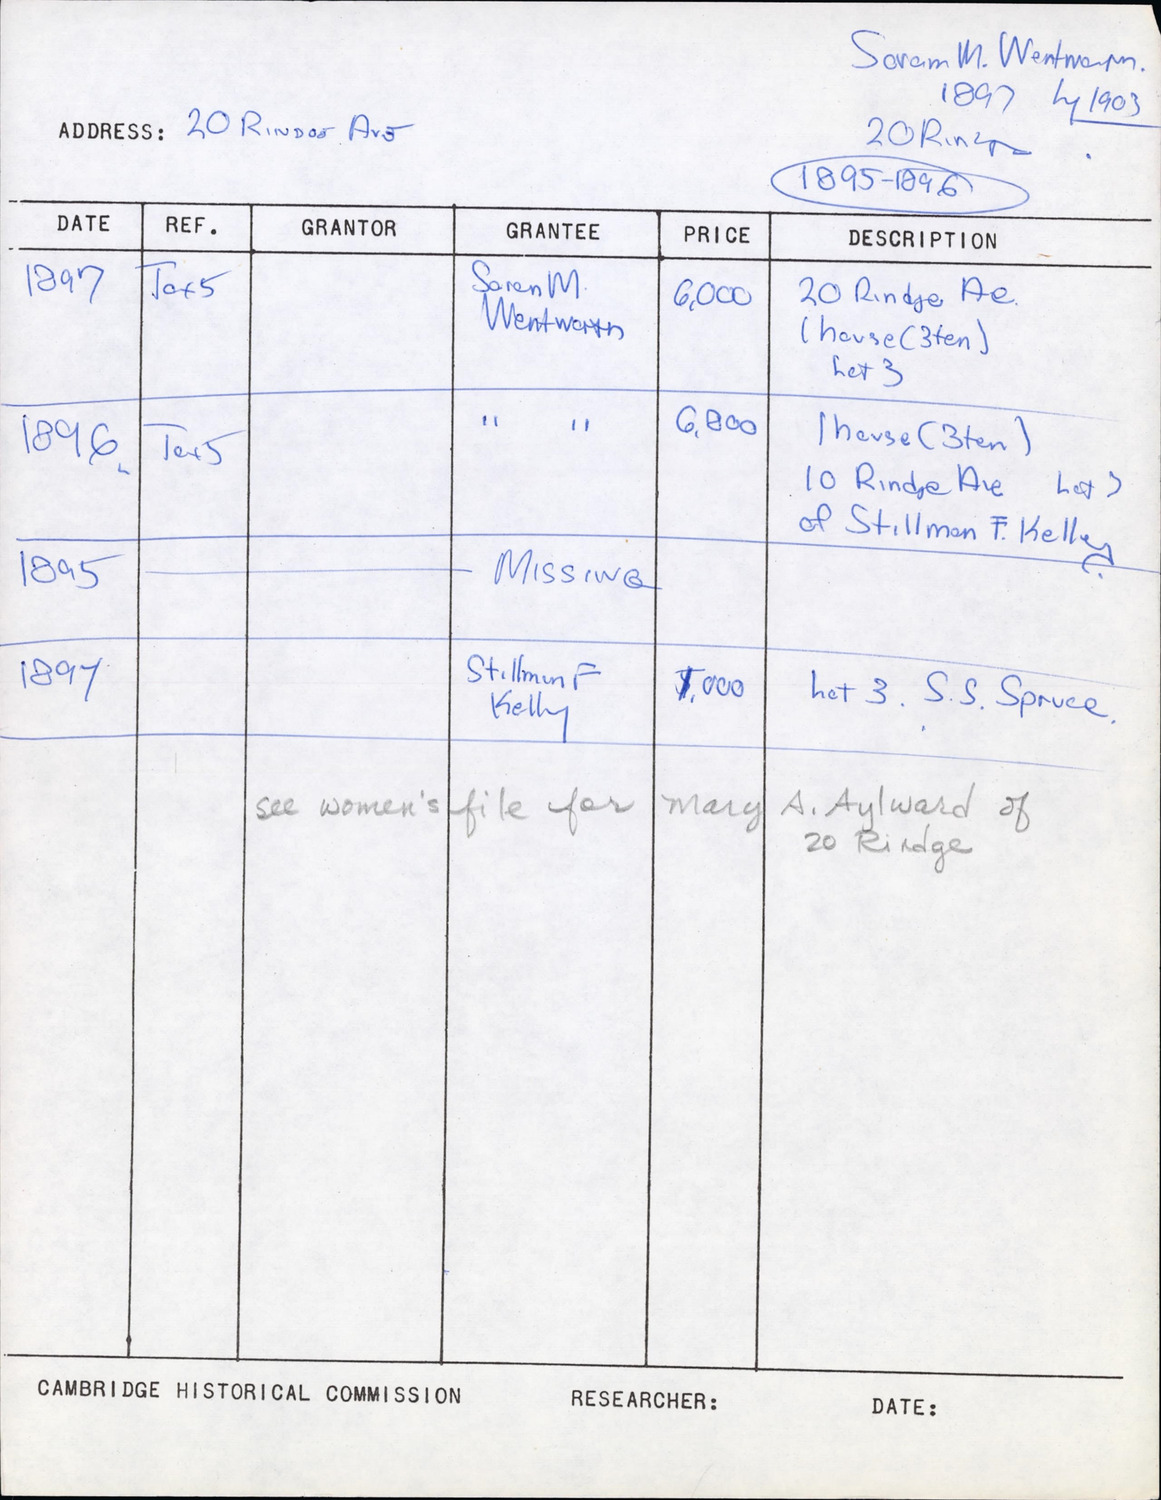 Sarah M. Wentworth.
1897 by 1903
ADDRESS: 20 RINDGE AVE
20 Rindge
1895-1896
DATE REF. GRANTOR GRANTEE PRICE DESCRIPTION
1897 Tax5 Sarah M. 6,000 20 Rindge Ae.
Wentworth 1 house (3ten)
Lot 3
1896 Tax5 " " 6,800 1 house (3ten)
10 Rindge Ave Lot 3
of Stillman F. Kelley
?
1895 MISSING
1894 Stillman F 1,000 Lot 3. S.S. Spruce.
Kelly
see women's file for Mary A. Aylward of
20 Rindge
CAMBRIDGE HISTORICAL COMMISSION RESEARCHER: DATE: